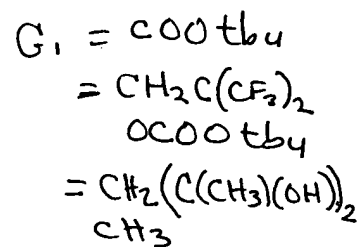 G₁ = COO tbu
= CH₂C(CF₃)₂
OCOO tbu
= CH₂(C(CH₃)(OH))₂
CH₃